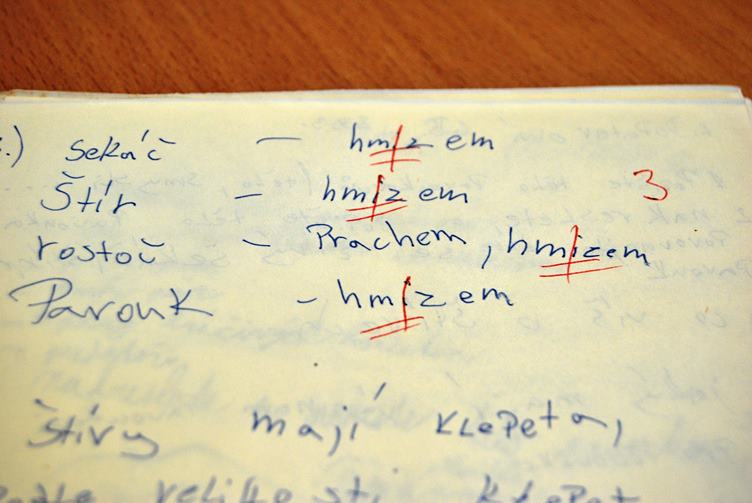 .) sekáč – hmizem
Štír – hmizem 3
rostoč – Prachem, hmizem
Pavouk – hmizem
štíry mají klepeta,
velikosti klepet